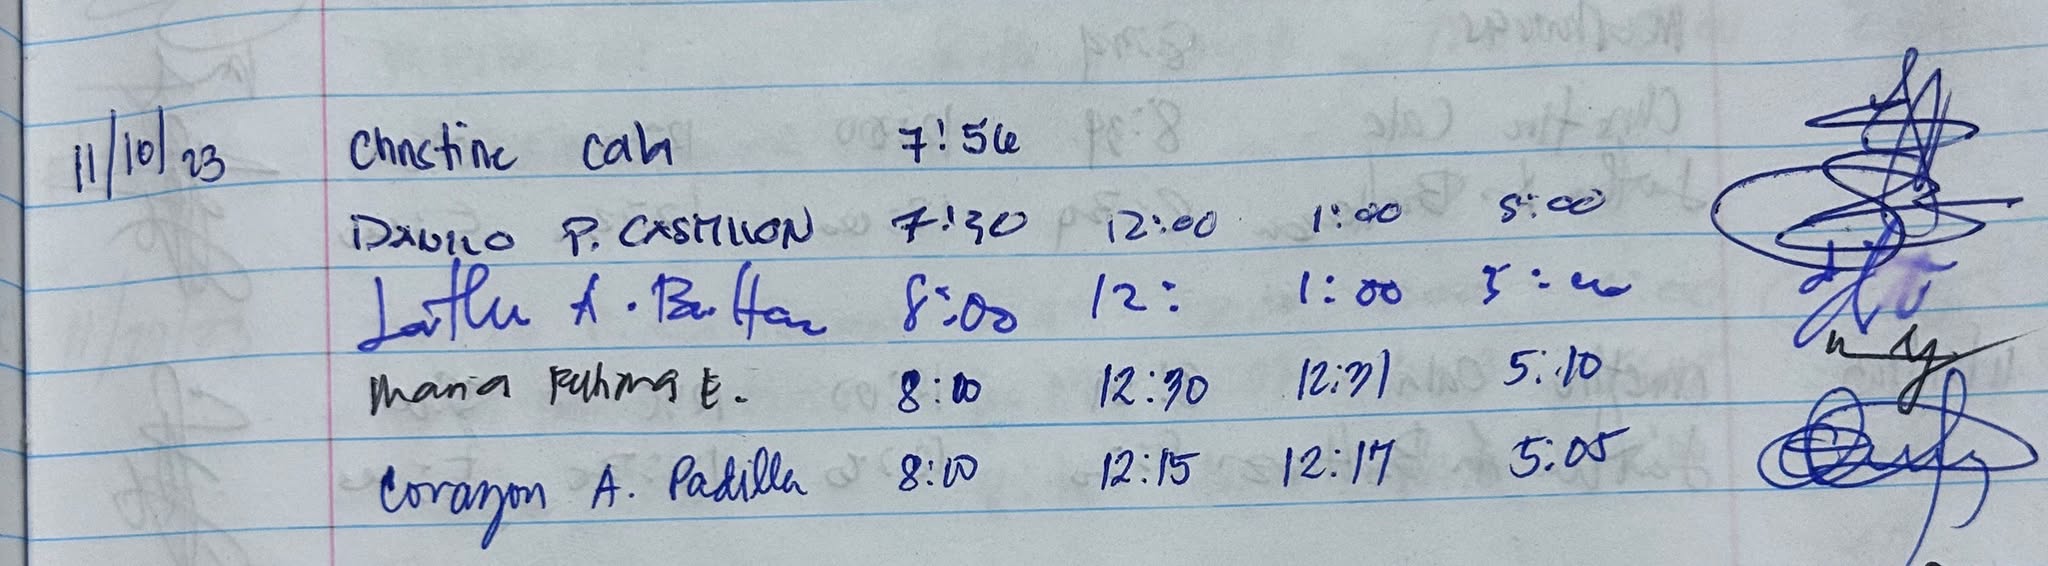 11/10/23 Christine Cala 7:56
DANILO P. CASTILLON 7:30 12:00 1:00 5:00
A. 8:00 12: 1:00 5:00
Maria Fatima E. 8:00 12:30 12:31 5:10
Corazon A. Padilla 8:10 12:15 12:17 5:05